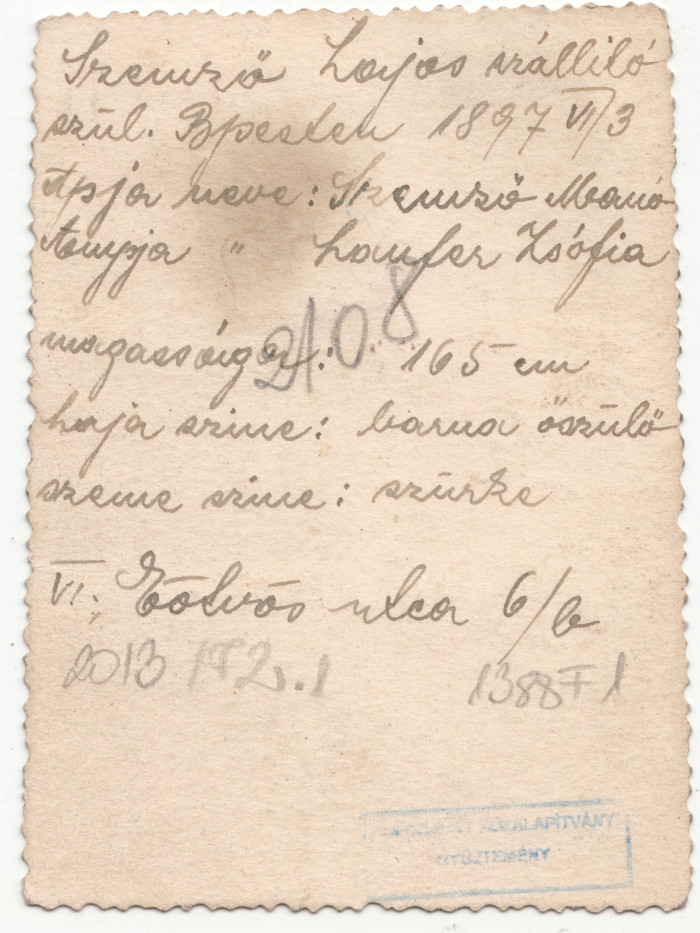 Szemző Lajos szállitó
szül. Bpesten 1897 VI/3
Apja neve: Szemző Manó
Anyja " Laufer Zsófia
2108
magassága: 165 cm
haja szine: barna őszülő
szeme szine: szürke
VI. Eötvös utca 6/b
2013
1388 F 1
KÖZALAPÍTVÁNY
GYŰJTEMÉNY